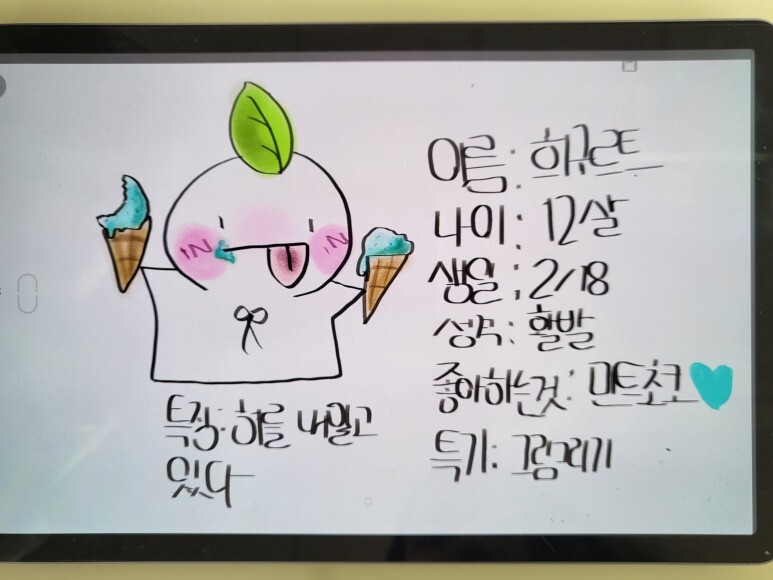 이름:
나이: 12살
생일: 2/18
성격: 활발
좋아하는것: 민트초코
특기: 그림그리기
특징: 혀를 내밀고
있다